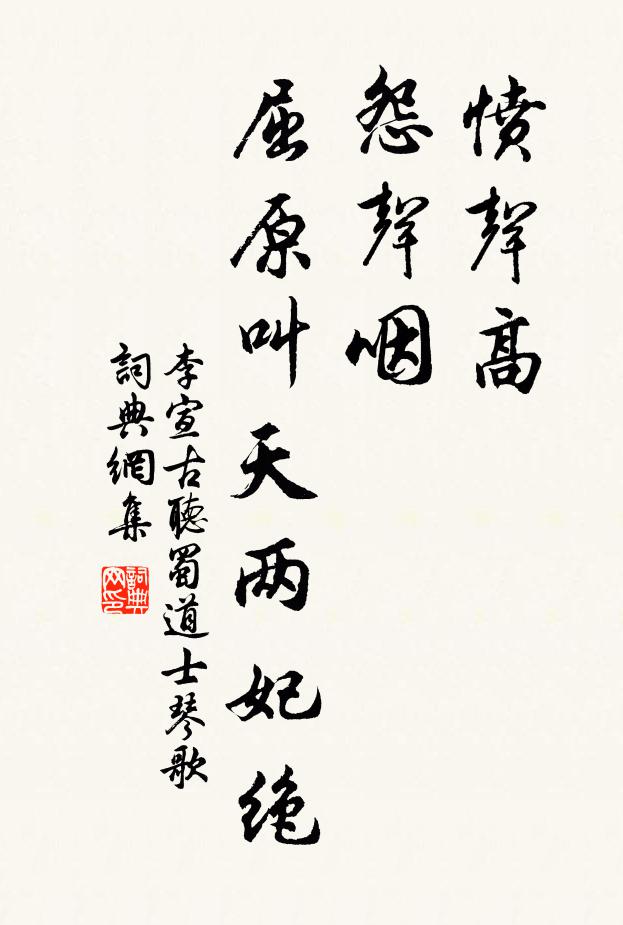 憤聲高
怨聲咽
屈原叫天两妃绝
李宣古聽蜀道士琴歌
詞典網集
詞典网印